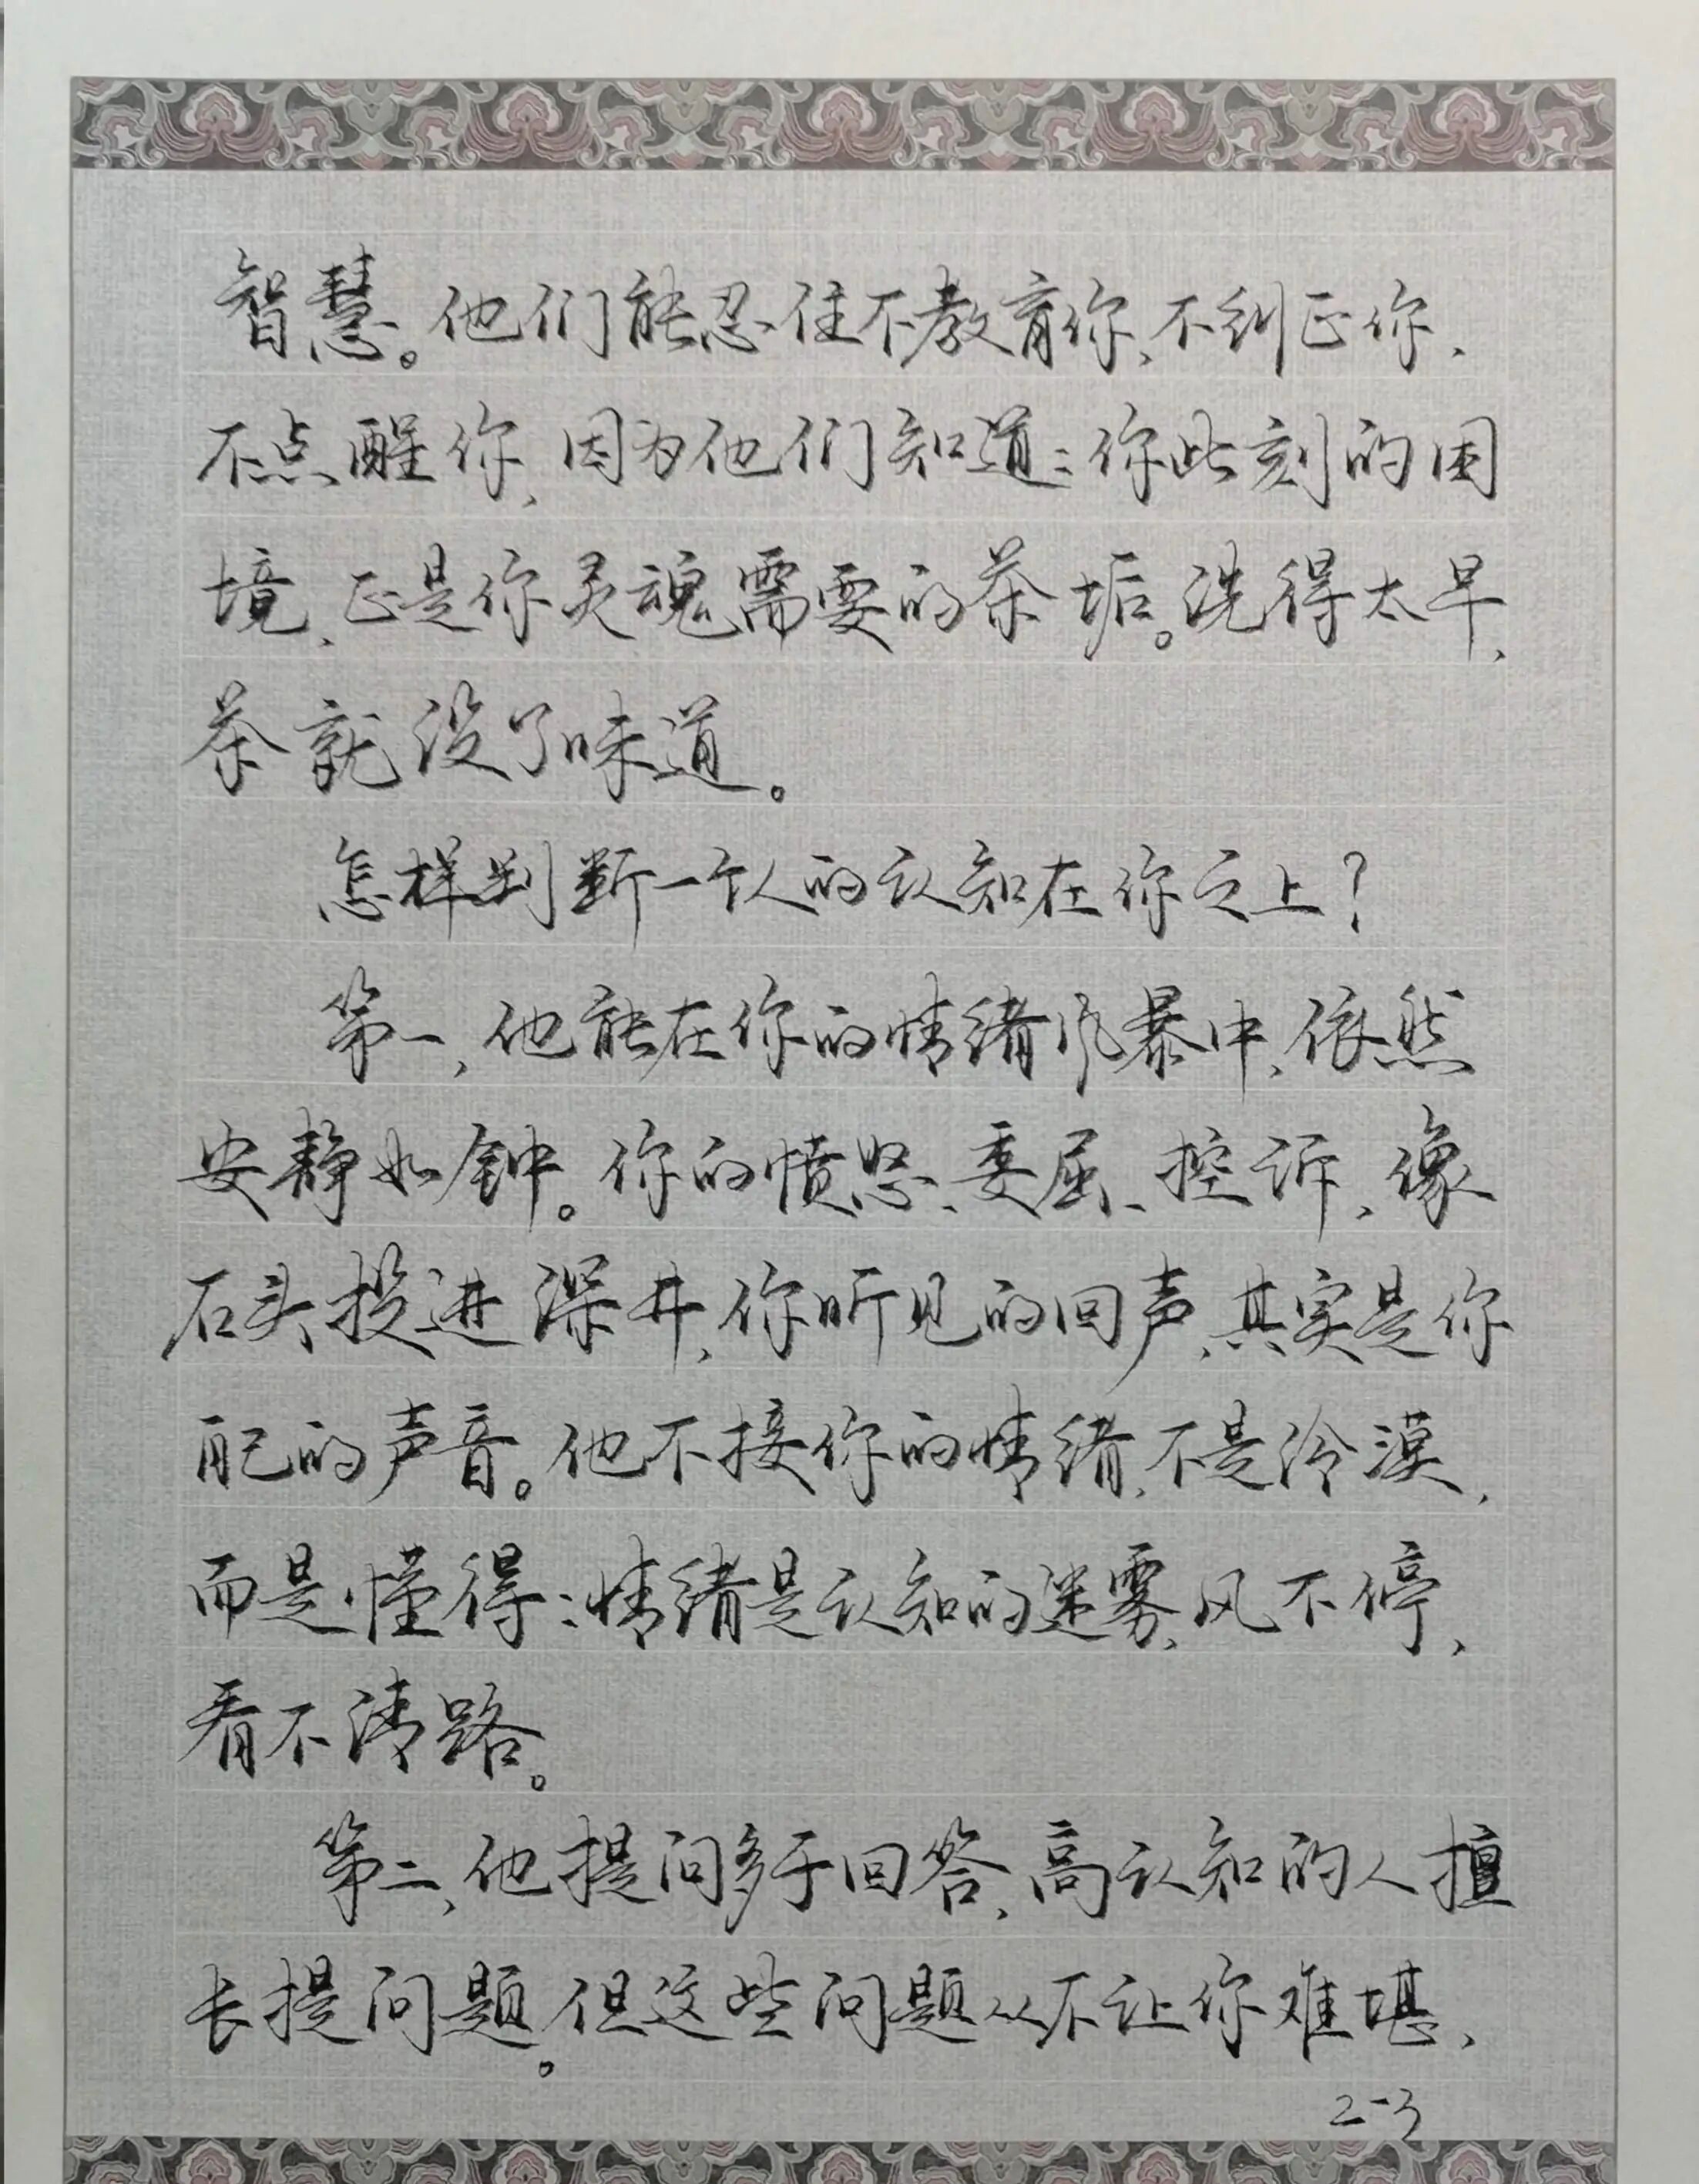 智慧。他们能忍住不教育你、不纠正你、
不点醒你，因为他们知道：你此刻的困
境，正是你灵魂需要的茶垢。洗得太早，
茶就没了味道。
怎样判断一个人的认知在你之上？
第一，他能在你的情绪风暴中，依然
安静如钟。你的愤怒、委屈、控诉，像
石头投进深井，你听见的回声，其实是你
自己的声音。他不接你的情绪，不是冷漠，
而是懂得：情绪是认知的迷雾，风不停，
看不清路。
第二，他提问多于回答，高认知的人擅
长提问题。但这些问题从不让你难堪，
2-3